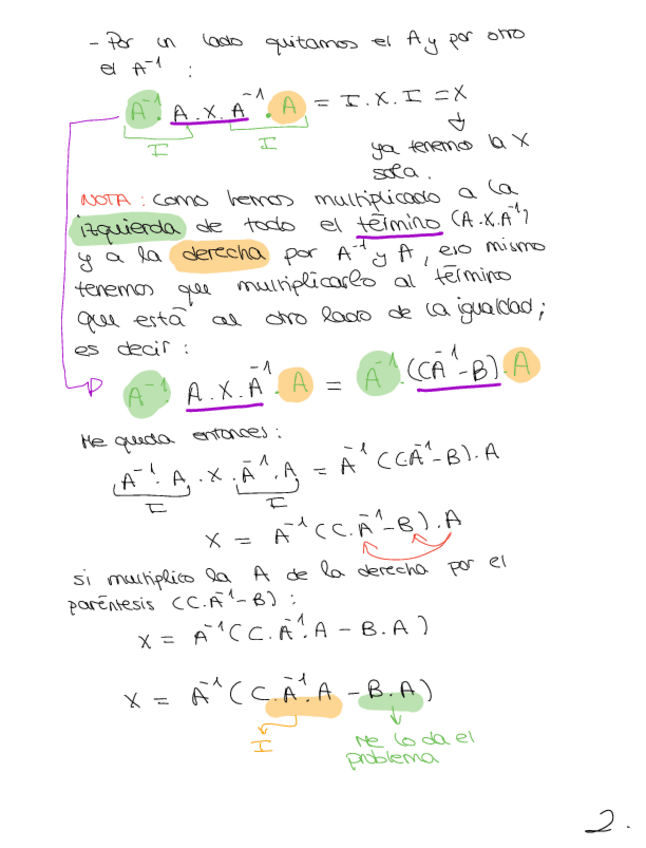 - Por un lado quitamos el A y por otro
el A⁻¹ :
A⁻¹. A . X . A⁻¹ . A = I . X . I = X
I I
ya tenemos la X
sola.
NOTA : como hemos multiplicado a la
izquierda de todo el término (A.X.A⁻¹)
y a la derecha por A⁻¹ y A, eso mismo
tenemos que multiplicarlo al término
que está al otro lado de la igualdad;
es decir :
A⁻¹ A . X . A⁻¹ . A = A⁻¹ . (CA⁻¹-B) . A
Me queda entonces :
A⁻¹. A . X . A⁻¹ . A = A⁻¹ (CA⁻¹-B) . A
I I
X = A⁻¹ (C.A⁻¹-B) . A
si multiplico la A de la derecha por el
paréntesis (C.A⁻¹-B) :
X = A⁻¹ (C.A⁻¹.A - B.A)
X = A⁻¹ (C.A⁻¹.A - B.A)
I
Me lo da el
problema
2.